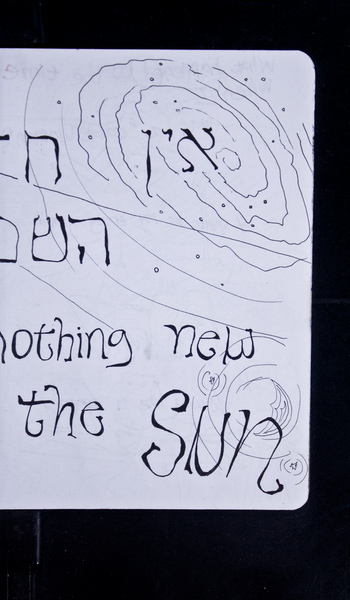 אין חד
השמ
nothing new
the Sun